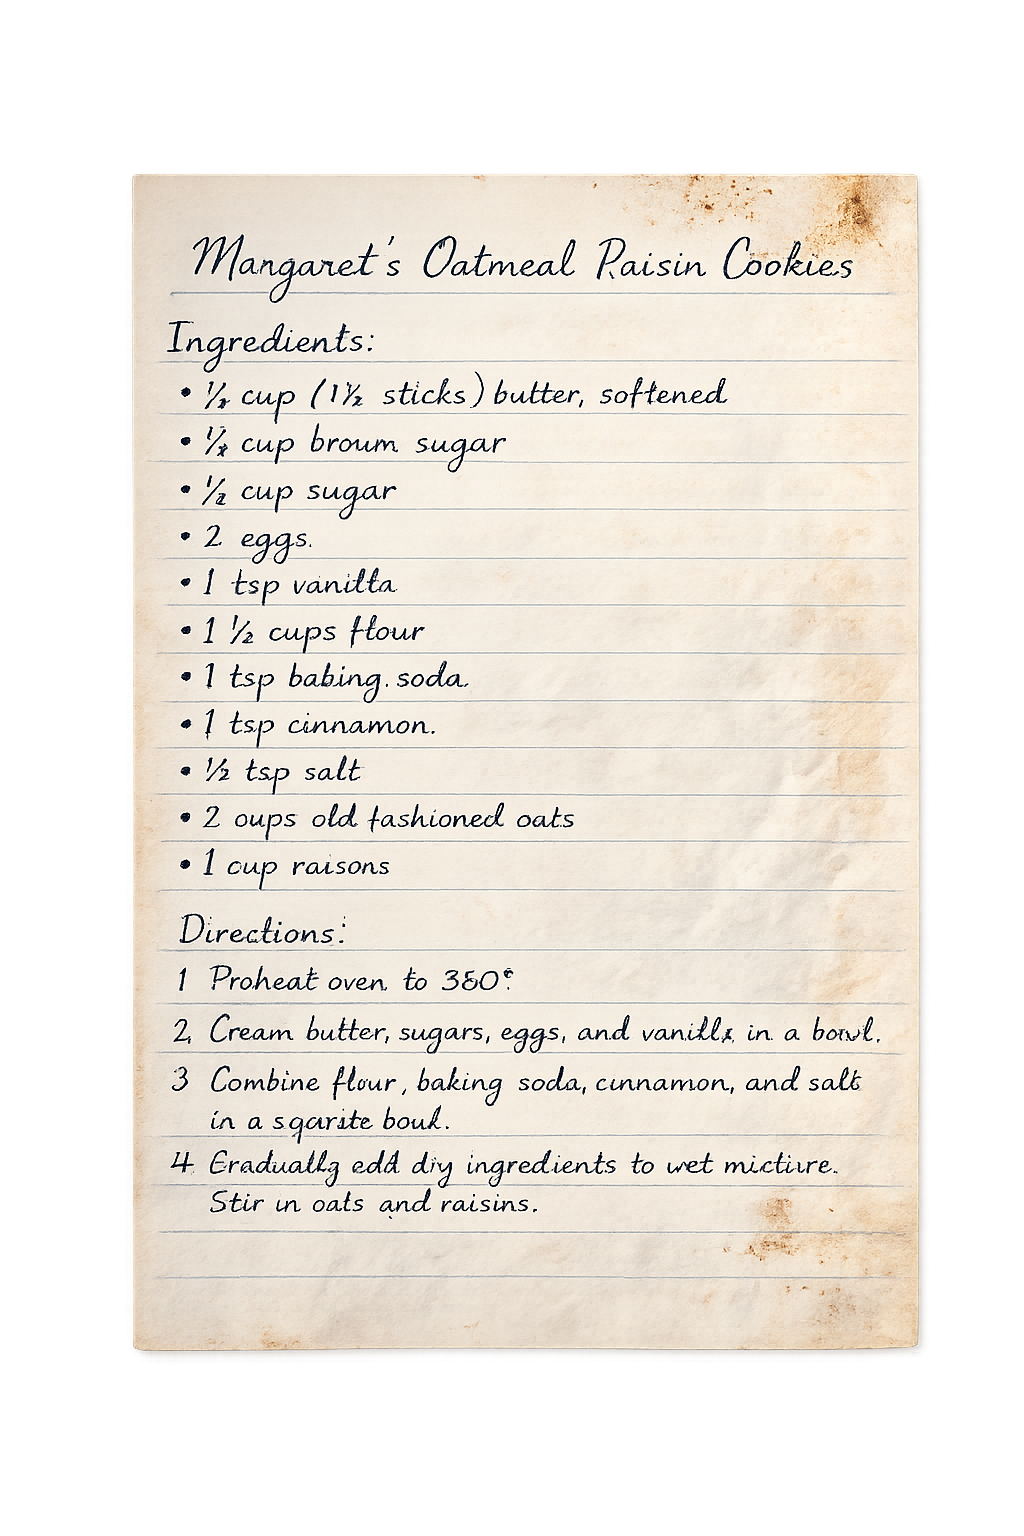 Margaret's Oatmeal Raisin Cookies
Ingredients:
• ½ cup (1½ sticks) butter, softened
• ½ cup broum sugar
• ½ cup sugar
• 2 eggs.
• 1 tsp vanilla
• 1 ½ cups flour
• 1 tsp babing. soda.
• 1 tsp cinnamon.
• ½ tsp salt
• 2 oups old fashioned oats
• 1 cup raisons
Directions:
1 Proheat oven to 350°
2. Cream butter, sugars, eggs, and vanilla in a bowl.
3 Combine flour, baking soda, cinnamon, and salt
in a bouk.
4. Eradually edd dry ingredients to wet
Stir in oats and raisins.